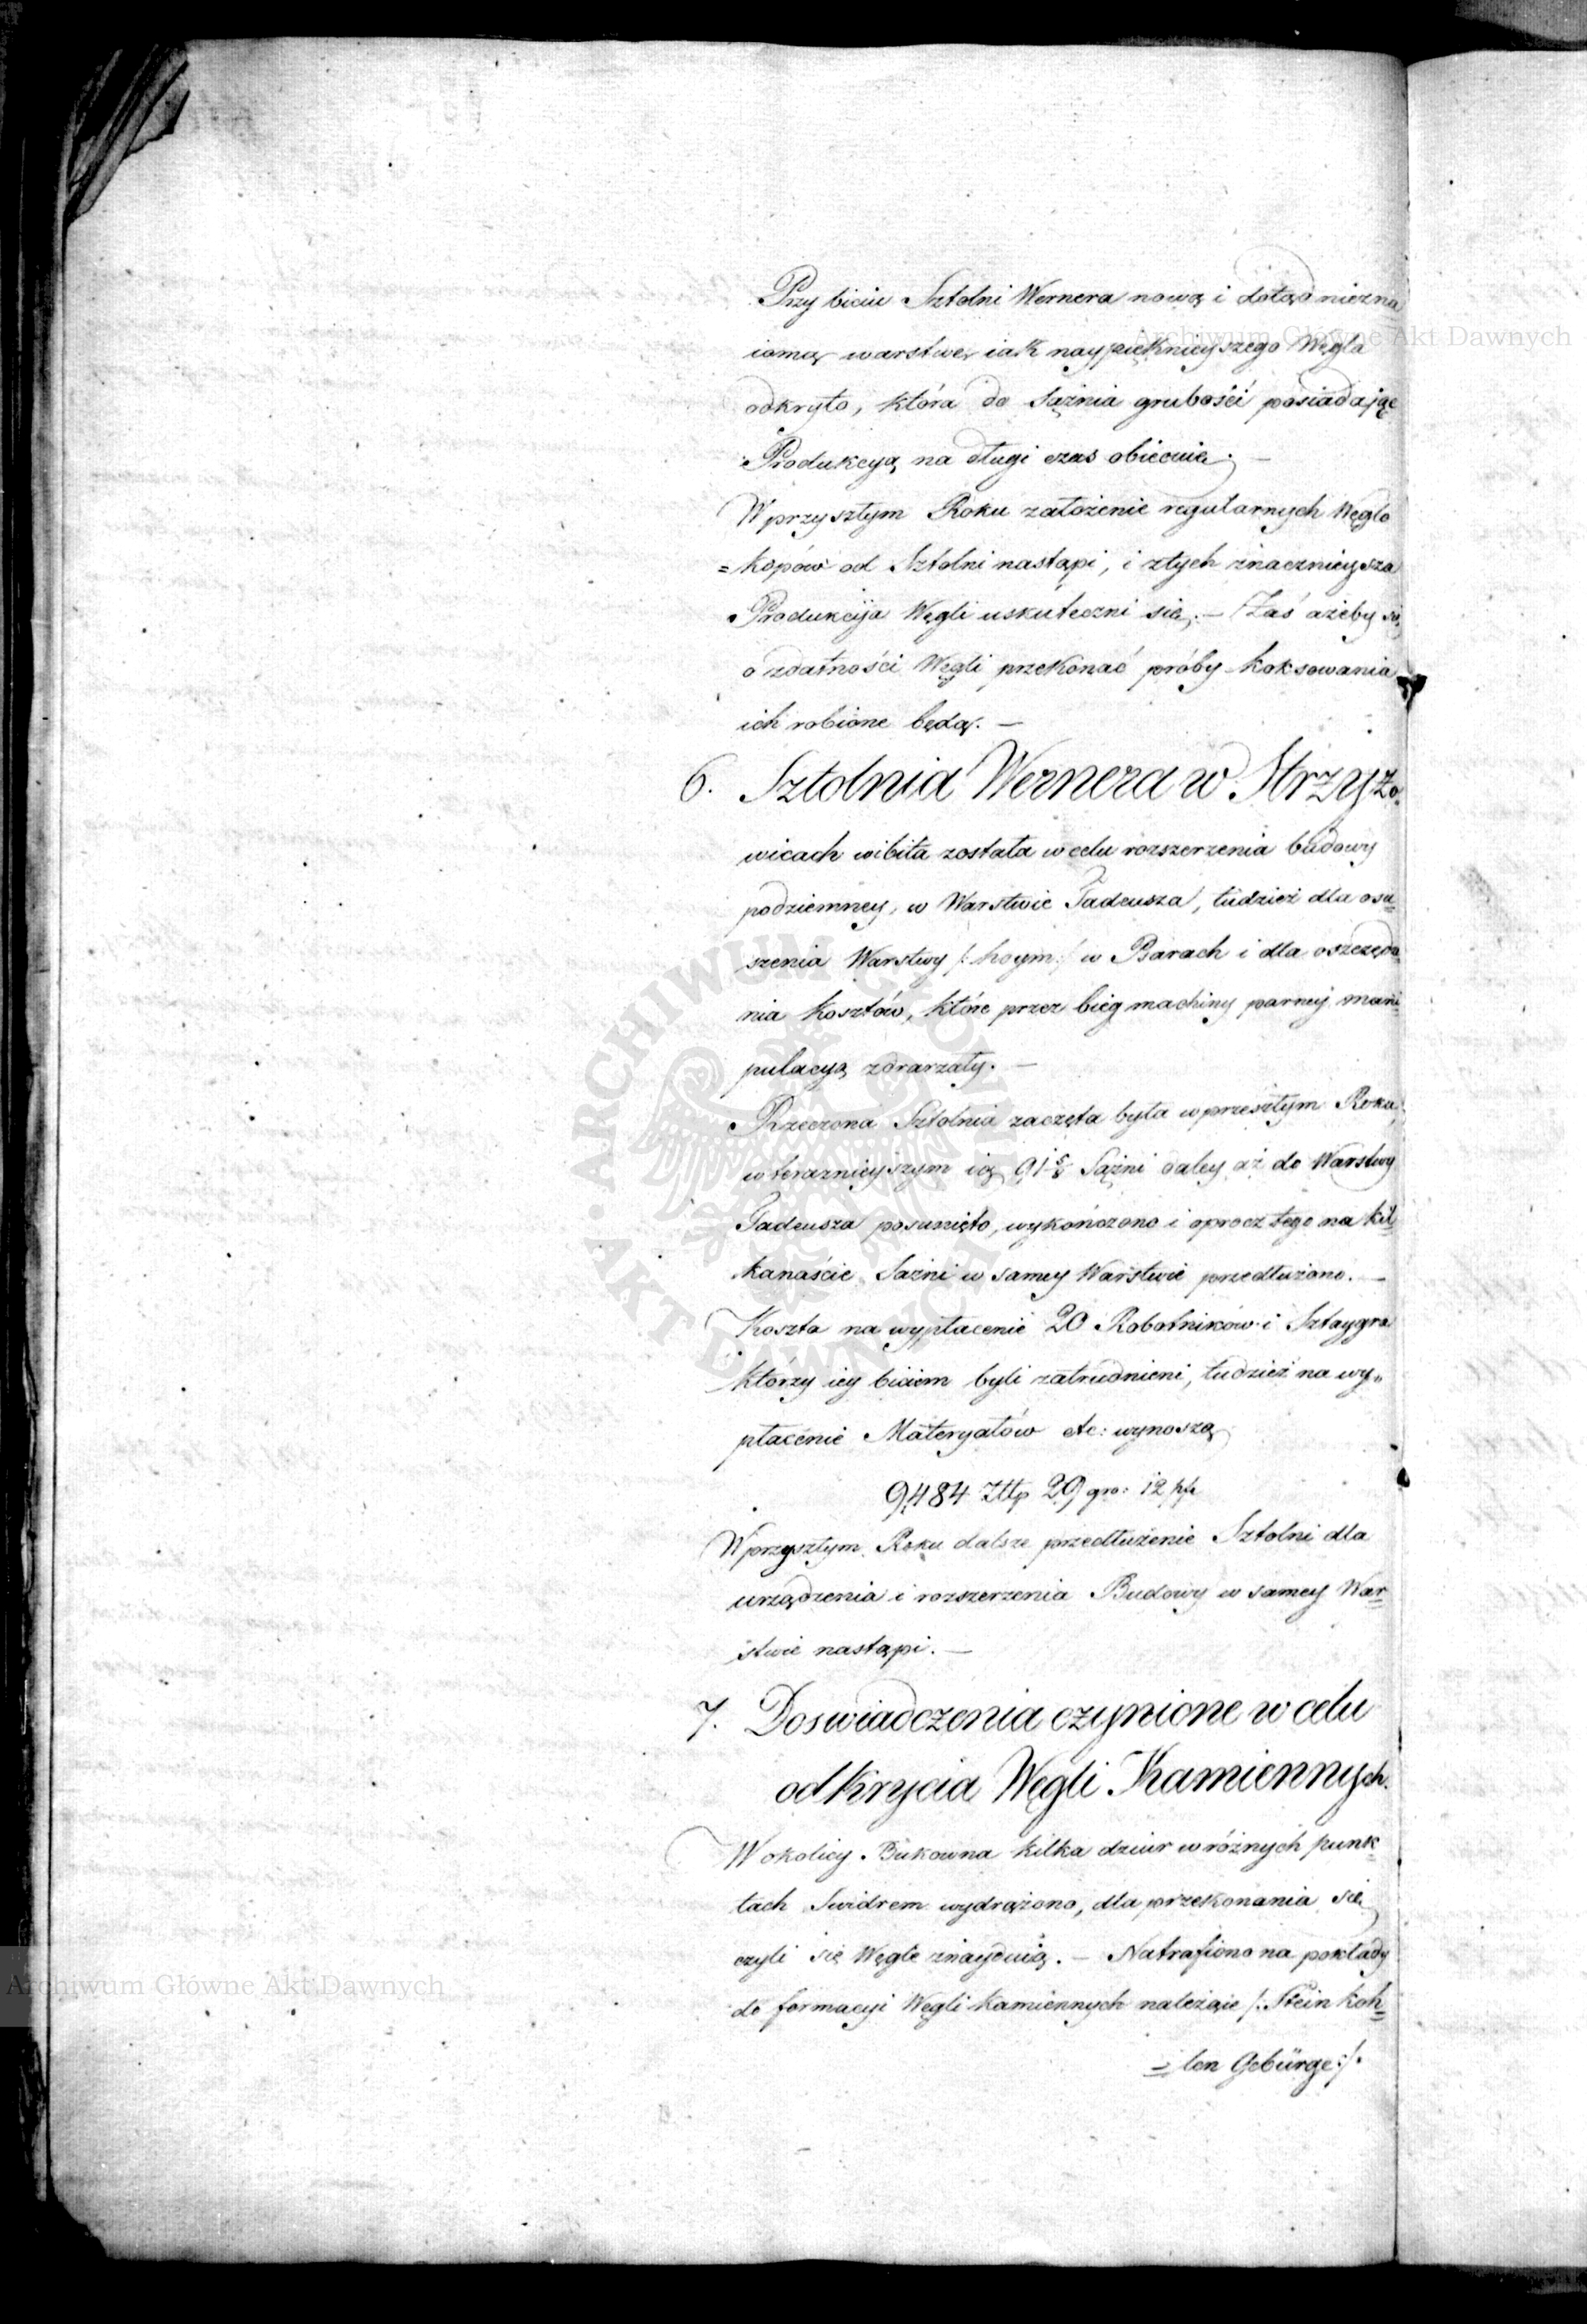 Przy biciu Sztolni Wernera nową i dotąd niezna
iomą warstwę iak naypięknieyszego Węgla
odkryto, która do Sążnia grubości posiadając
Produkcyą na długi czas obiecuie. —
W przyszłym Roku założenie regularnych Węglo
=kopów od Sztolni nastąpi, i z tych znacznieysza
Produkcyja Węgli uskuteczni się. — Zaś ażeby się
o zdatności Węgli przekonać próby koksowania
ich robione będą. —
6. Sztolnia Wernera w Strzyżo
wicach wibita została w celu rozszerzenia budowy
podziemney, w Warstwie Tadeusza, tudzież dla osu=
szenia Warstwy /: hoym :/ w Barach i dla oszczęda=
nia kosztów, które przez bieg machiny parnej mani=
pulacyą zdrarzały. —
Rzeczona Sztolnia zaczęta była w przeszłym Roku,
w teraznieyszym ią 91 5/8 Sążni daley aż do Warstwy
Tadeusza posunięto, wykończono i oprocz tego na kil=
kanaście Sążni w samey Warstwie przedłużono. —
Koszta na wypłacenie 20 Robotników i Sztaygra
którzy iey biciem byli zatrudnieni, tudzież na wy„
płacenie Materyałów etc: wynoszą
9,484 Złłp 29 gro: 12 hf
W przyszłym Roku dalsze przedłużenie Sztolni dla
urządzenia i rozszerzenia Budowy w samey War=
stwie nastąpi. —
7. Doswiadczenia czynione w celu
odkrycia Węgli Kamiennych.
W okolicy Bukowna kilka dziur w różnych punk=
tach Swidrem wydrążono, dla przekonania się
czyli się Węgle znayduią. — Natrafiono na pokłady
do formacyi Węgli kamiennych należące /: Steinkoh=
=len Gebürge :/.
Archiwum Główne Akt Dawnych
Archiwum Główne Akt Dawnych